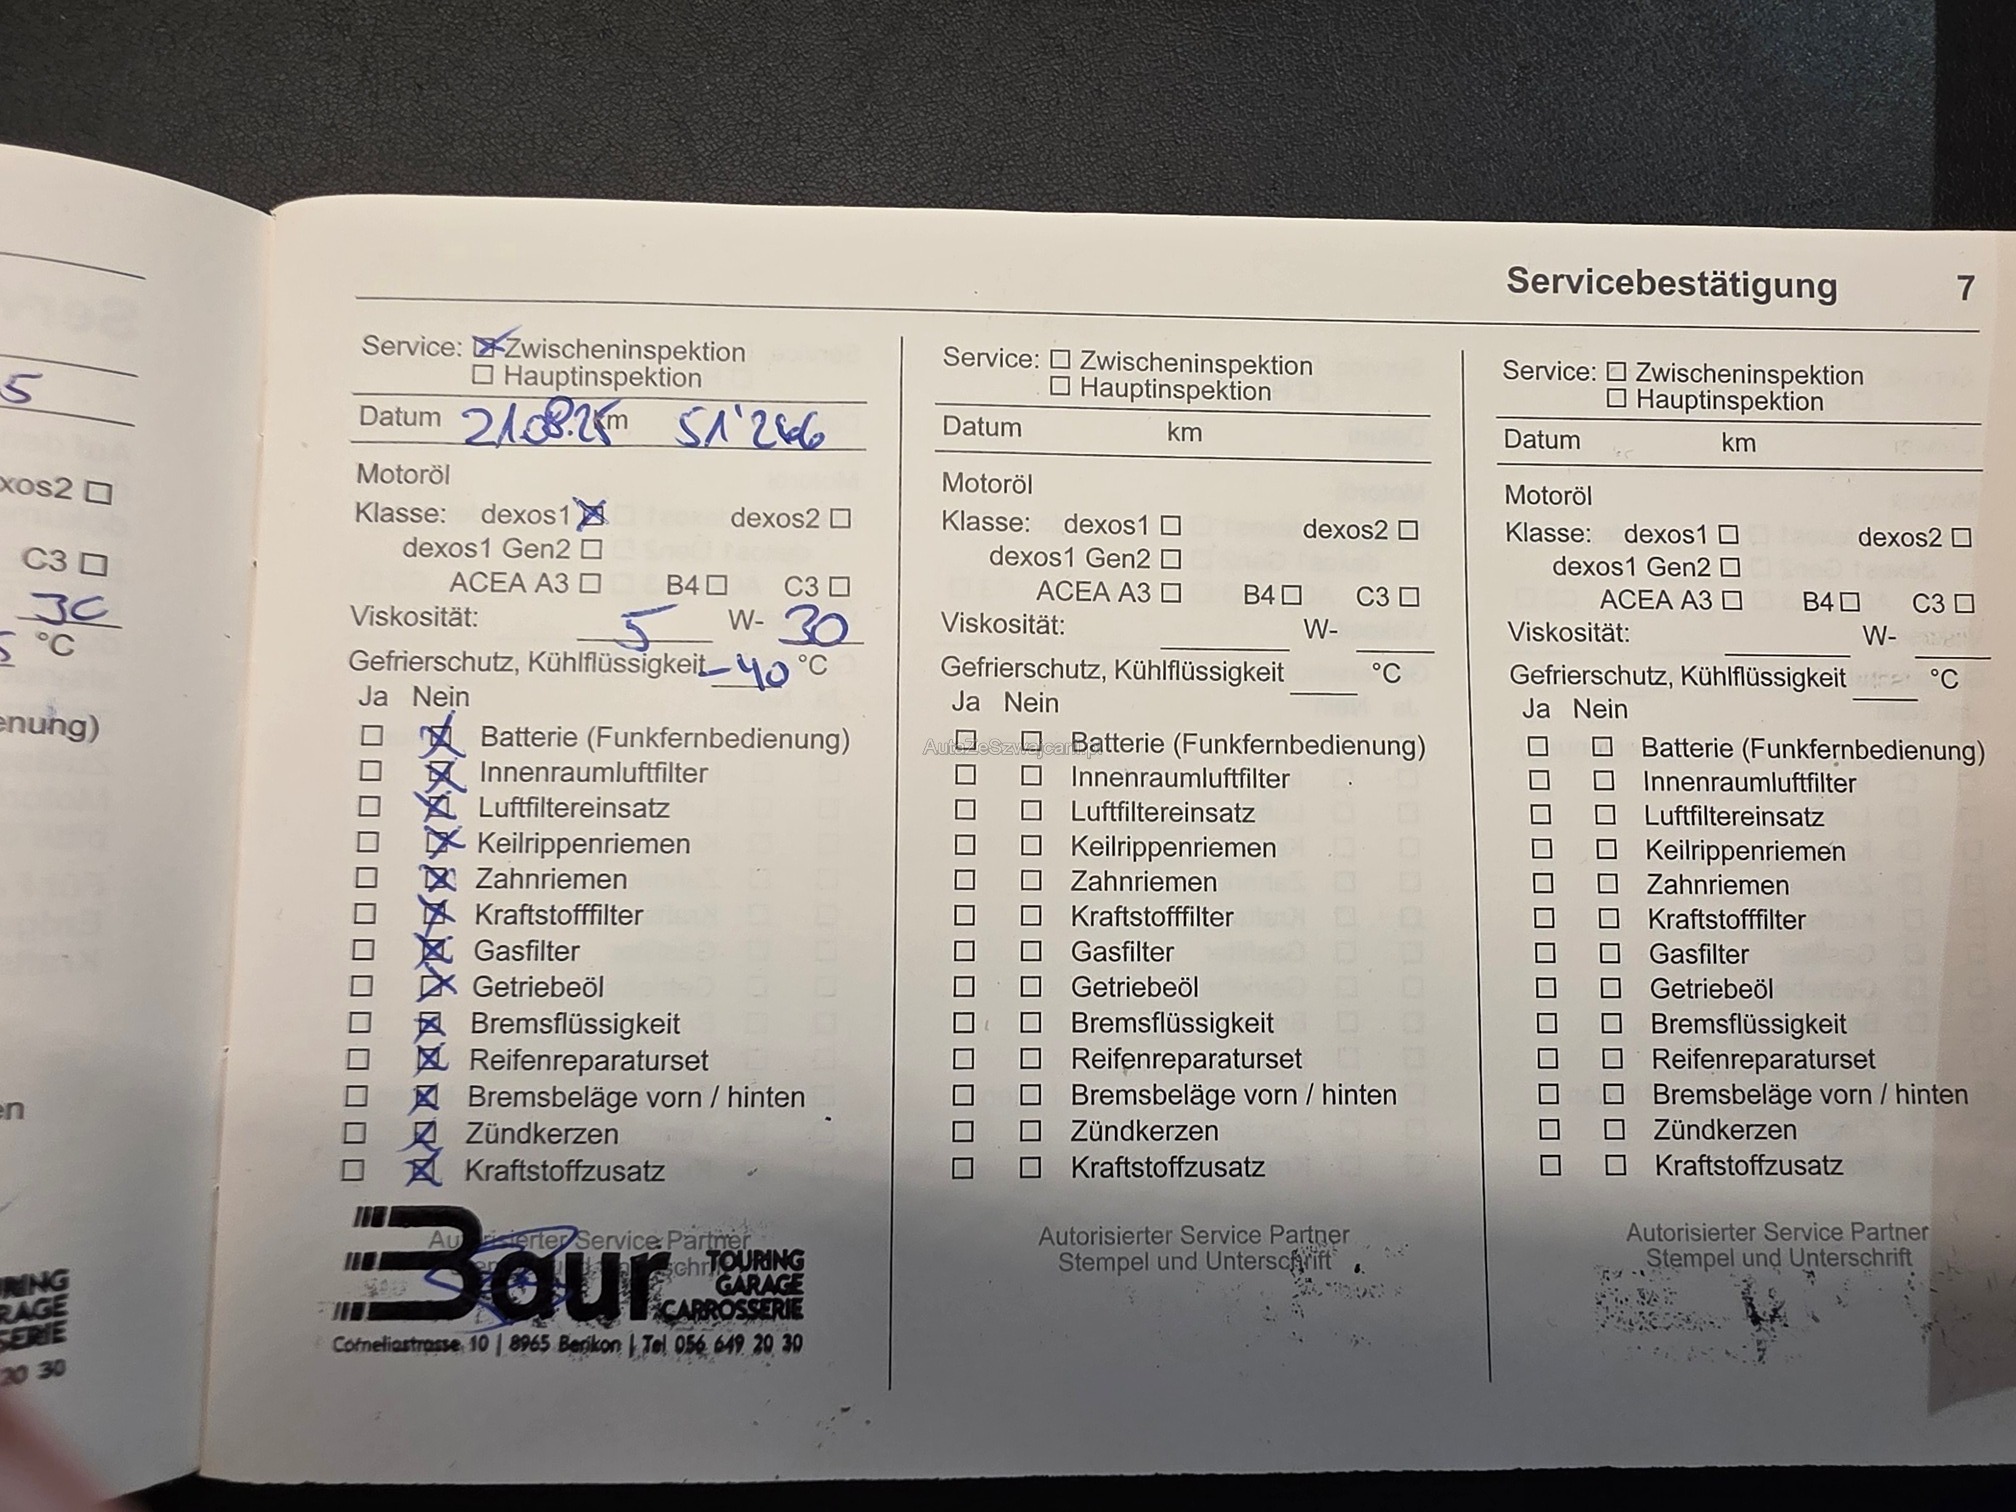 Servicebestätigung 7
5
xos2
C3
30
°C
enung)
en
RING
RAGE
SERIE
20 30
Service: Zwischeninspektion
Hauptinspektion
Datum 21.08.25 km 51'246
Motoröl
Klasse: dexos1 dexos2
dexos1 Gen2
ACEA A3 B4 C3
Viskosität: 5 W- 30
Gefrierschutz, Kühlflüssigkeit -40 °C
Ja Nein
Batterie (Funkfernbedienung)
Innenraumluftfilter
Luftfiltereinsatz
Keilrippenriemen
Zahnriemen
Kraftstofffilter
Gasfilter
Getriebeöl
Bremsflüssigkeit
Reifenreparaturset
Bremsbeläge vorn / hinten
Zündkerzen
Kraftstoffzusatz
Autorisierter Service Partner
Baur TOURING
GARAGE
CARROSSERIE
Corneliastrasse 10 | 8965 Berikon | Tel 056 649 20 30
Service: Zwischeninspektion
Hauptinspektion
Datum km
Motoröl
Klasse: dexos1 dexos2
dexos1 Gen2
ACEA A3 B4 C3
Viskosität: W-
Gefrierschutz, Kühlflüssigkeit °C
Ja Nein
AutaZeSzwajcarii.pl
Batterie (Funkfernbedienung)
Innenraumluftfilter
Luftfiltereinsatz
Keilrippenriemen
Zahnriemen
Kraftstofffilter
Gasfilter
Getriebeöl
Bremsflüssigkeit
Reifenreparaturset
Bremsbeläge vorn / hinten
Zündkerzen
Kraftstoffzusatz
Autorisierter Service Partner
Stempel und Unterschrift
Service: Zwischeninspektion
Hauptinspektion
Datum km
Motoröl
Klasse: dexos1 dexos2
dexos1 Gen2
ACEA A3 B4 C3
Viskosität: W-
Gefrierschutz, Kühlflüssigkeit °C
Ja Nein
Batterie (Funkfernbedienung)
Innenraumluftfilter
Luftfiltereinsatz
Keilrippenriemen
Zahnriemen
Kraftstofffilter
Gasfilter
Getriebeöl
Bremsflüssigkeit
Reifenreparaturset
Bremsbeläge vorn / hinten
Zündkerzen
Kraftstoffzusatz
Autorisierter Service Partner
Stempel und Unterschrift